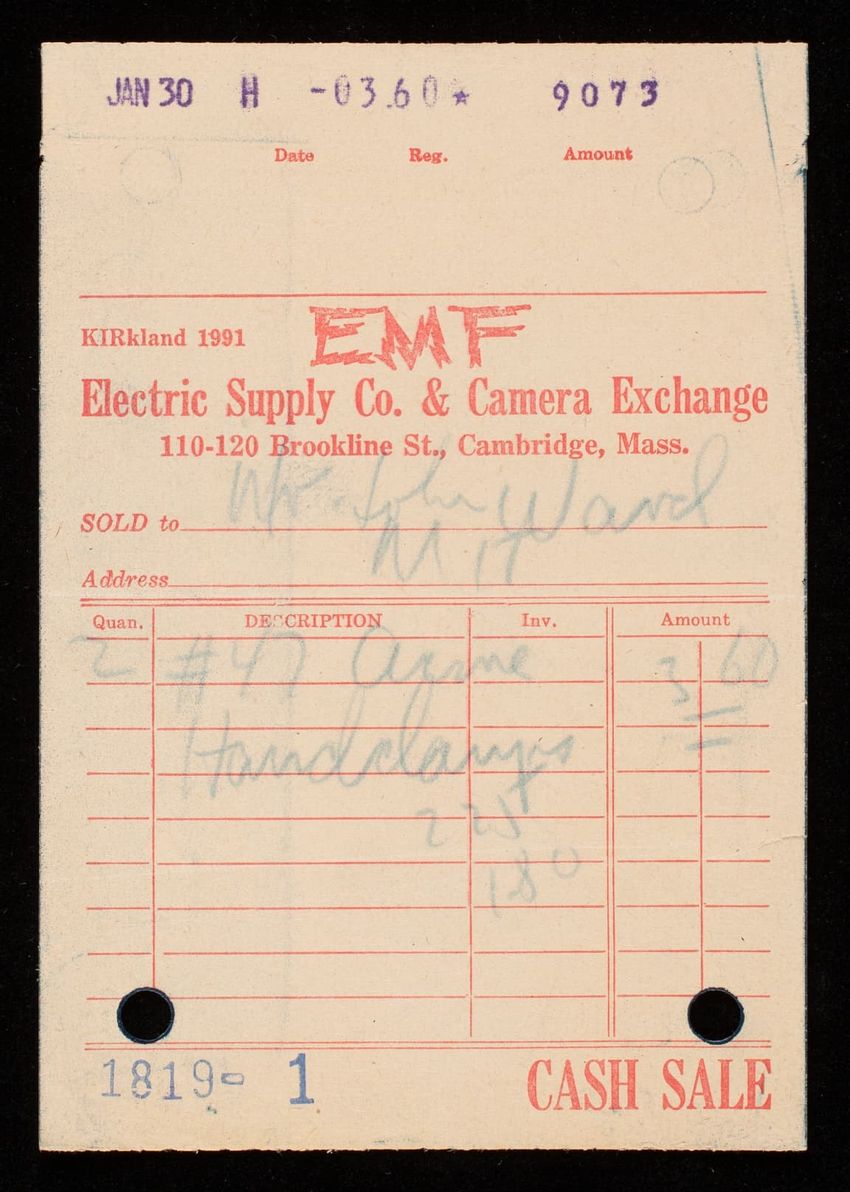 JAN 30 H -03.60* 9073
Date Reg. Amount
KIRkland 1991
EMF
Electric Supply Co. & Camera Exchange
110-120 Brookline St., Cambridge, Mass.
SOLD to Mr John Ward
Address MIT
Quan. DESCRIPTION Inv. Amount
2 #47 Acme 3 60
Handclamps
225
180
1819- 1 CASH SALE